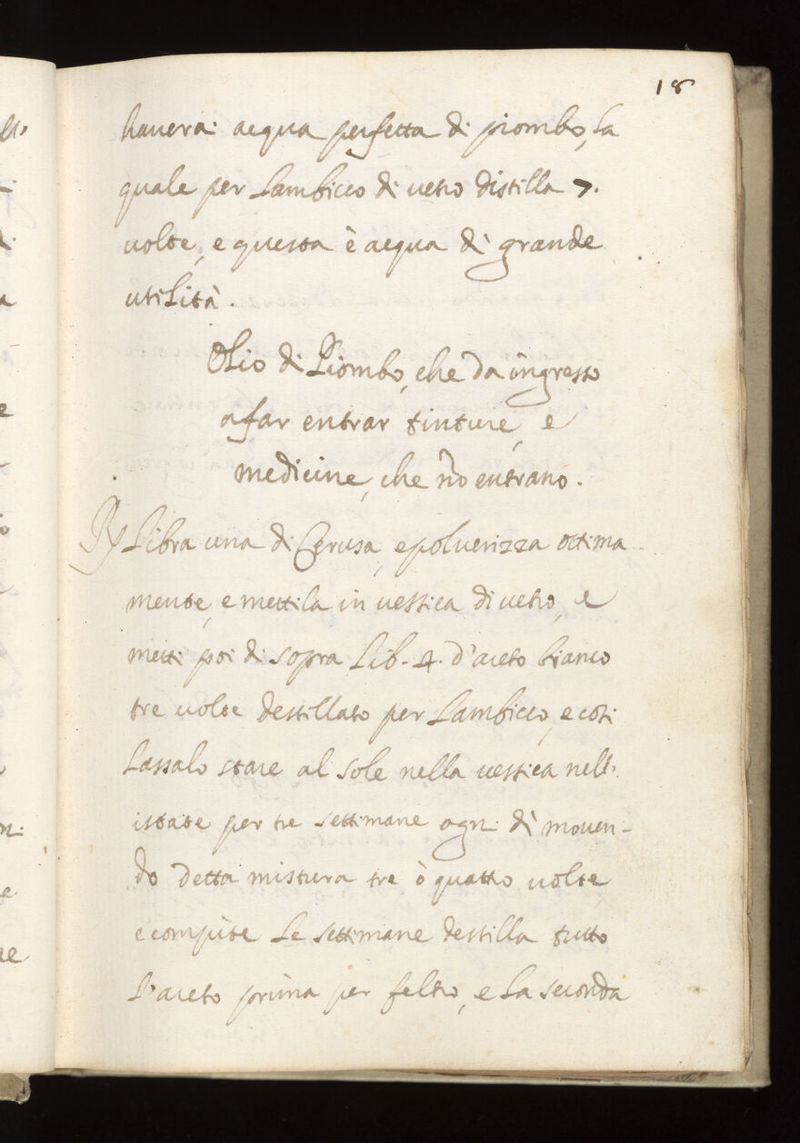 18
hauerai acqua perfetta di piombo, la
quale per Lambicco di uetro distilla 7.
uolte, e questa è acqua di grande
utilità.
Olio di Piombo, che da ingresso
a far entrar tinture, e
medicine, che nõ entrano.
℞ Libra una di Cerusa, e poluerizza ottima
mente, e mettila in uessica di uetro, e
metti poi di sopra Lib. 4. d'aceto bianco
tre uolte destillato per Lambicco, e così
Lassalo stare al Sole nella uessica nell'
istate per tre settimane ogni dì mouen-
do detta mistura tre ò quattro uolte
e compite le settimane destilla tutto
L'aceto prima per feltro, e la seconda